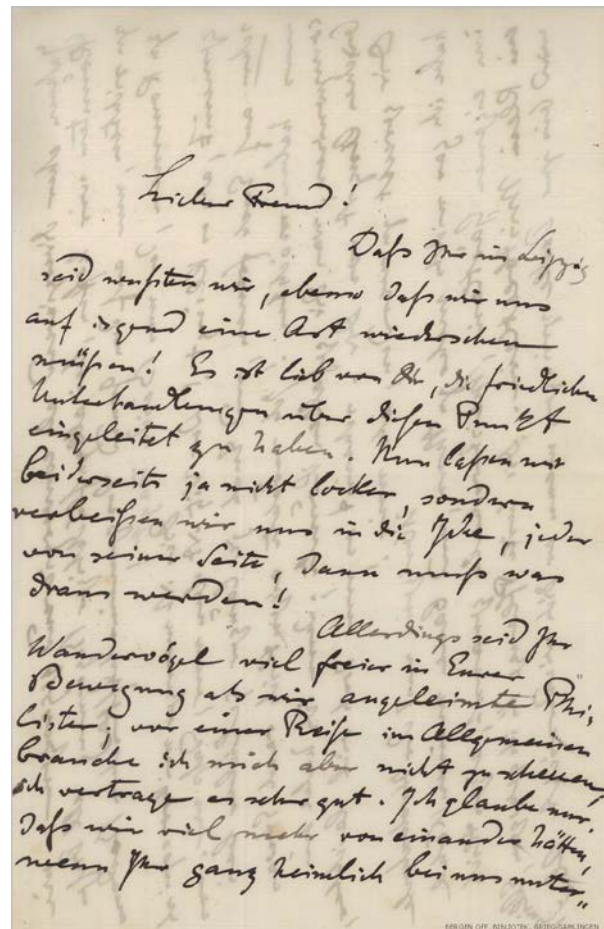 Lieber Freund!
Daß Ihr in Leipzig
seid wußten wir, ebenso daß wir uns
auf irgend eine Art wiedersehen
müßen! Es ist lieb von Dir, die friedlichen
Unterhandlungen über diesen Punkt
eingeleitet zu haben. Nun laßen wir
beiderseits ja nicht locker, sondern
verbeißen wir uns in die Idee, jeder
von seiner Seite, dann muß was
draus werden!
Allerdings seid Ihr
Wandervögel viel freier in Eurer
Bewegung als wir angeleimte Phi-
lister; vor einer Reise im Allgemeinen
brauche ich mich aber nicht zu scheuen,
ich vertrage es sehr gut. Ich glaube nur,
daß wir viel mehr von einander hätten,
wenn Ihr ganz heimlich bei uns unter-
BERGEN OFF. BIBLIOTEK, GRIEGSAMLINGEN